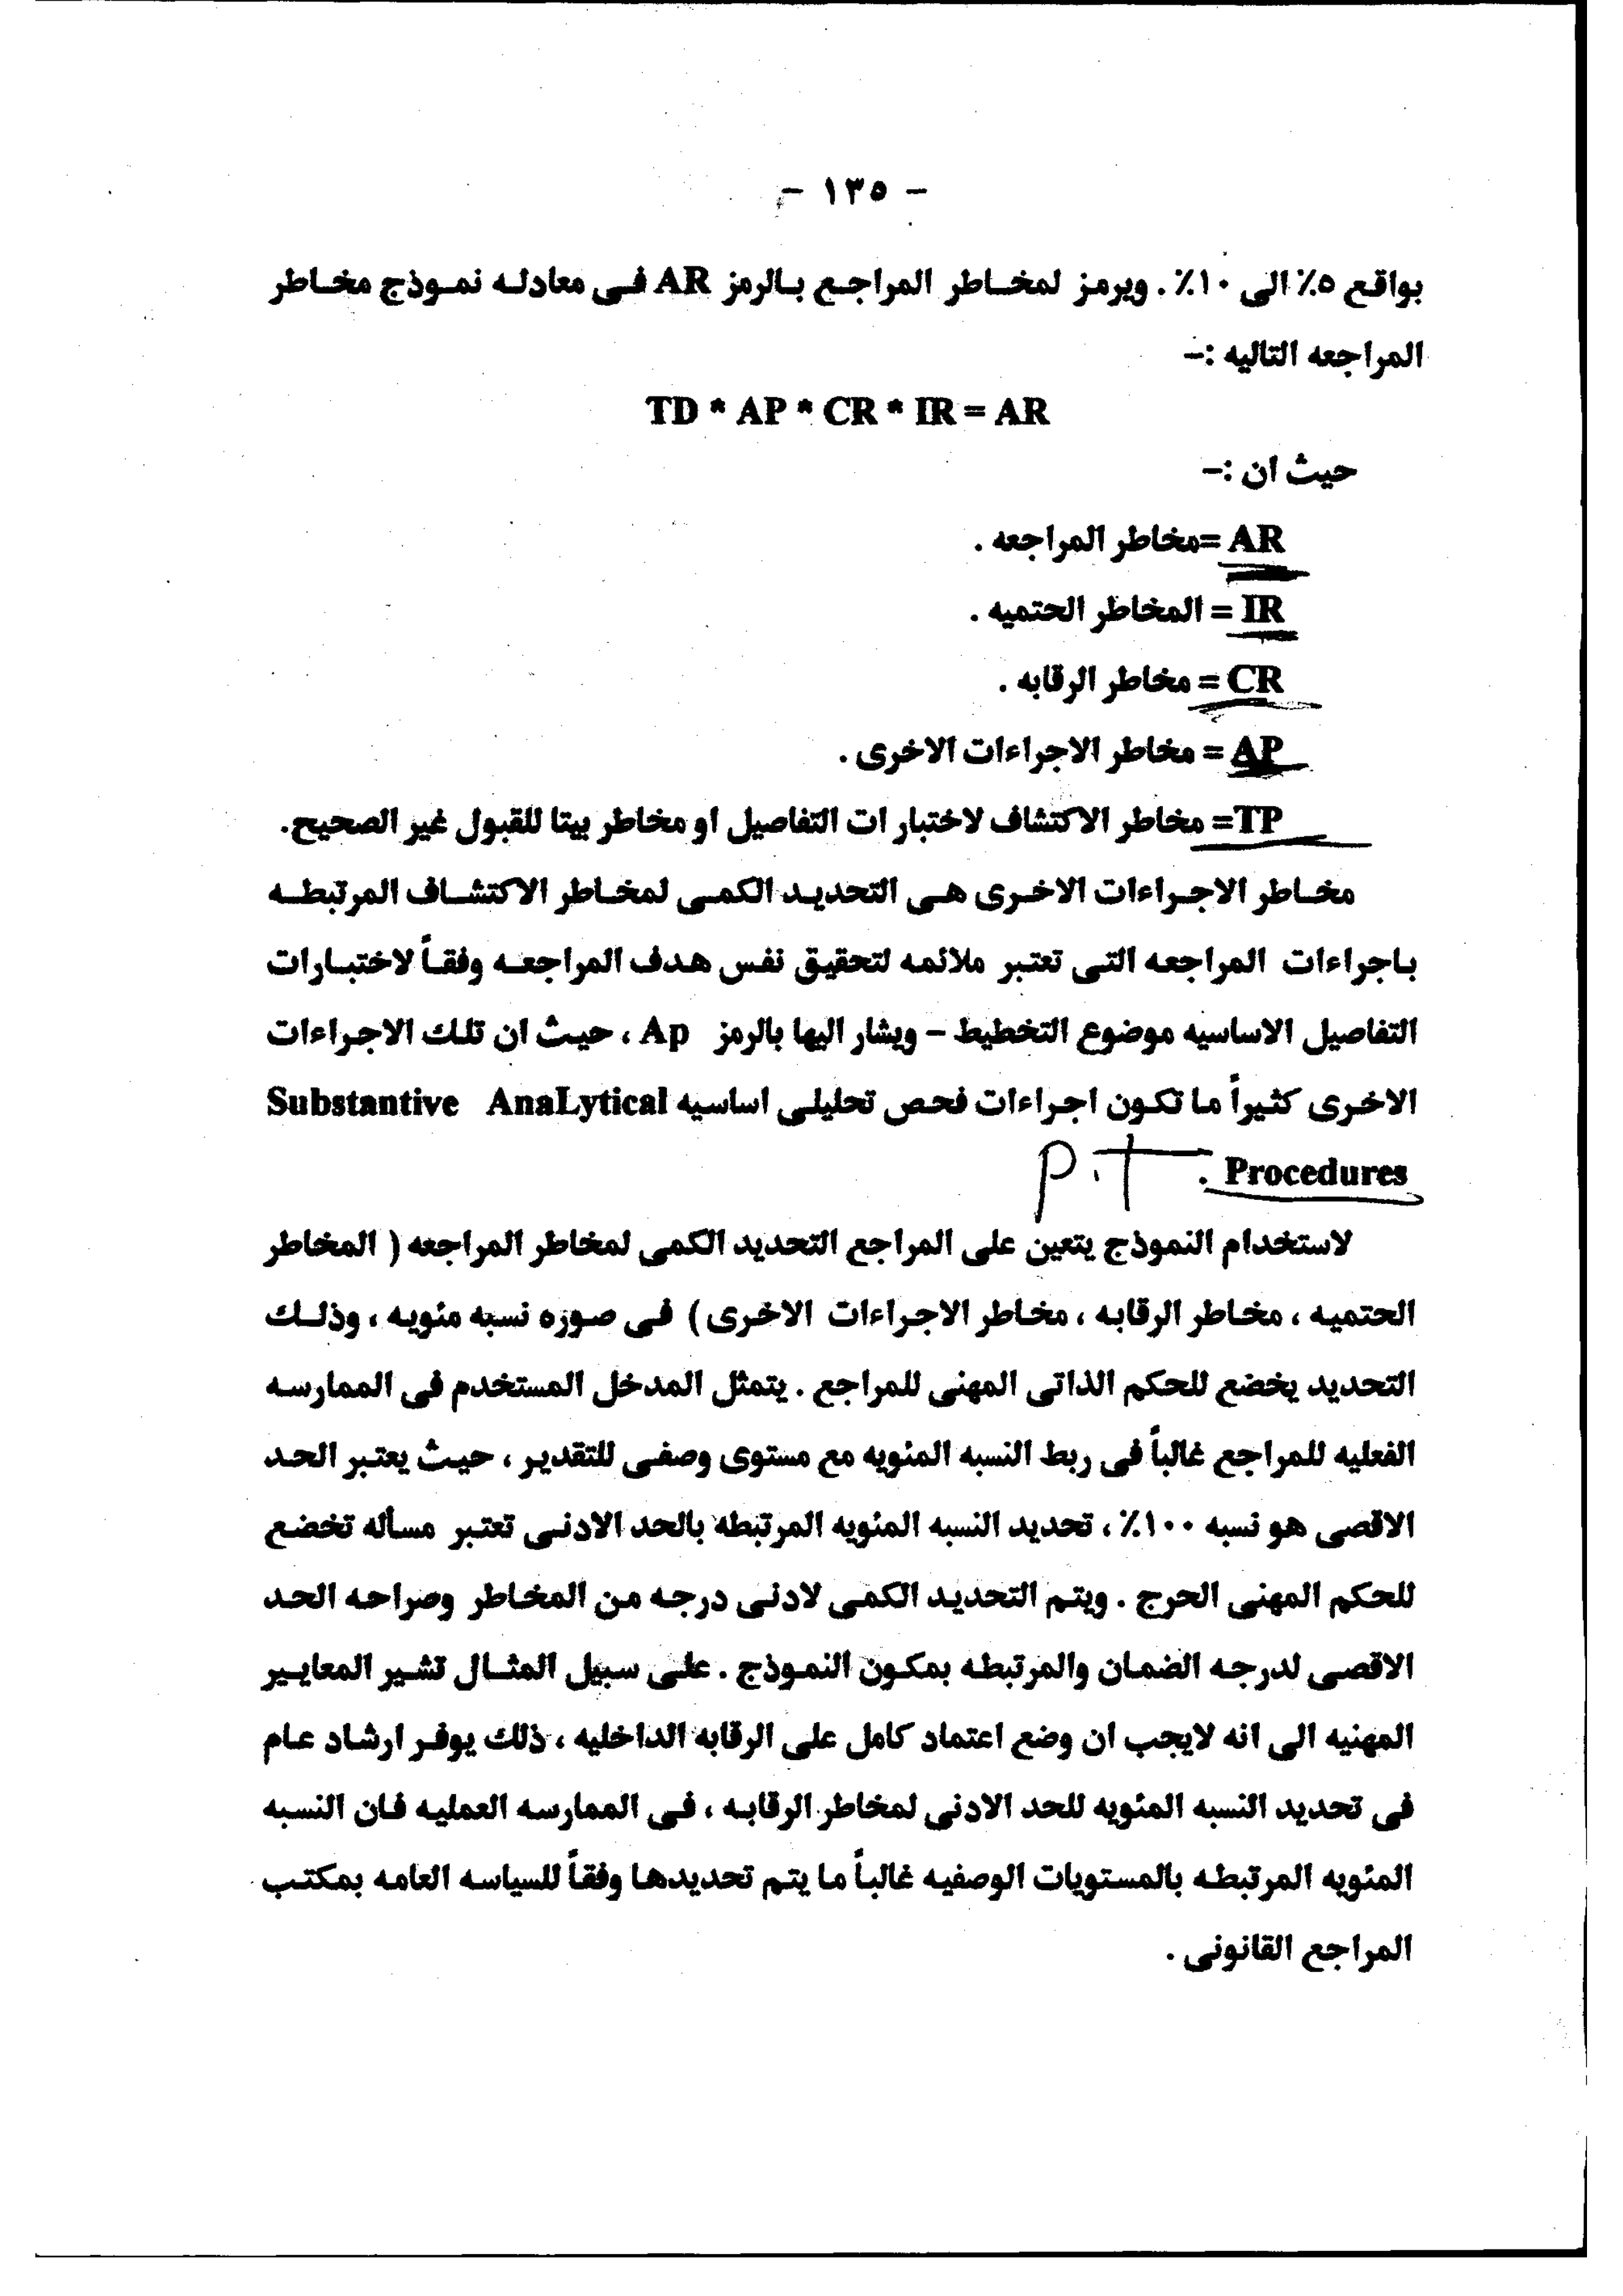 - ١٣٥ -
بواقع ٥٪ الى ١٠٪ . ويرمز لمخاطر المراجع بالرمز AR فى معادله نموذج مخاطر
المراجعه التاليه :-
TD * AP * CR * IR = AR
حيث ان :-
AR =مخاطر المراجعه .
IR = المخاطر الحتميه .
CR = مخاطر الرقابه .
AP = مخاطر الاجراءات الاخرى .
TP= مخاطر الاكتشاف لاختبارات التفاصيل او مخاطر بيتا للقبول غير الصحيح.
مخاطر الاجراءات الاخرى هى التحديد الكمى لمخاطر الاكتشاف المرتبطه
باجراءات المراجعه التى تعتبر ملائمه لتحقيق نفس هدف المراجعه وفقاً لاختبارات
التفاصيل الاساسيه موضوع التخطيط - ويشار اليها بالرمز Ap ، حيث ان تلك الاجراءات
الاخرى كثيراً ما تكون اجراءات فحص تحليلى اساسيه Substantive AnaLytical
Procedures .
لاستخدام النموذج يتعين على المراجع التحديد الكمى لمخاطر المراجعه ( المخاطر
الحتميه ، مخاطر الرقابه ، مخاطر الاجراءات الاخرى ) فى صوره نسبه مئويه ، وذلك
التحديد يخضع للحكم الذاتى المهنى للمراجع . يتمثل المدخل المستخدم فى الممارسه
الفعليه للمراجع غالباً فى ربط النسبه المئويه مع مستوى وصفى للتقدير ، حيث يعتبر الحد
الاقصى هو نسبه ١٠٠٪ ، تحديد النسبه المئويه المرتبطه بالحد الادنى تعتبر مسأله تخضع
للحكم المهنى الحرج . ويتم التحديد الكمى لادنى درجه من المخاطر وصراحه الحد
الاقصى لدرجه الضمان والمرتبطه بمكون النموذج . على سبيل المثال تشير المعايير
المهنيه الى انه لايجب ان وضع اعتماد كامل على الرقابه الداخليه ، ذلك يوفر ارشاد عام
فى تحديد النسبه المئويه للحد الادنى لمخاطر الرقابه ، فى الممارسه العمليه فان النسبه
المئويه المرتبطه بالمستويات الوصفيه غالباً ما يتم تحديدها وفقاً للسياسه العامه بمكتب
المراجع القانونى .